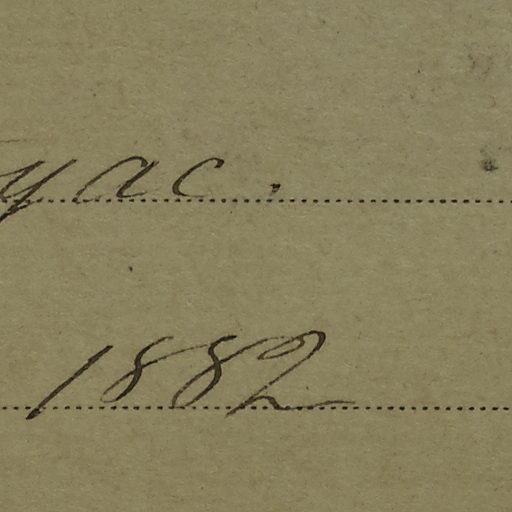 yac.
1882